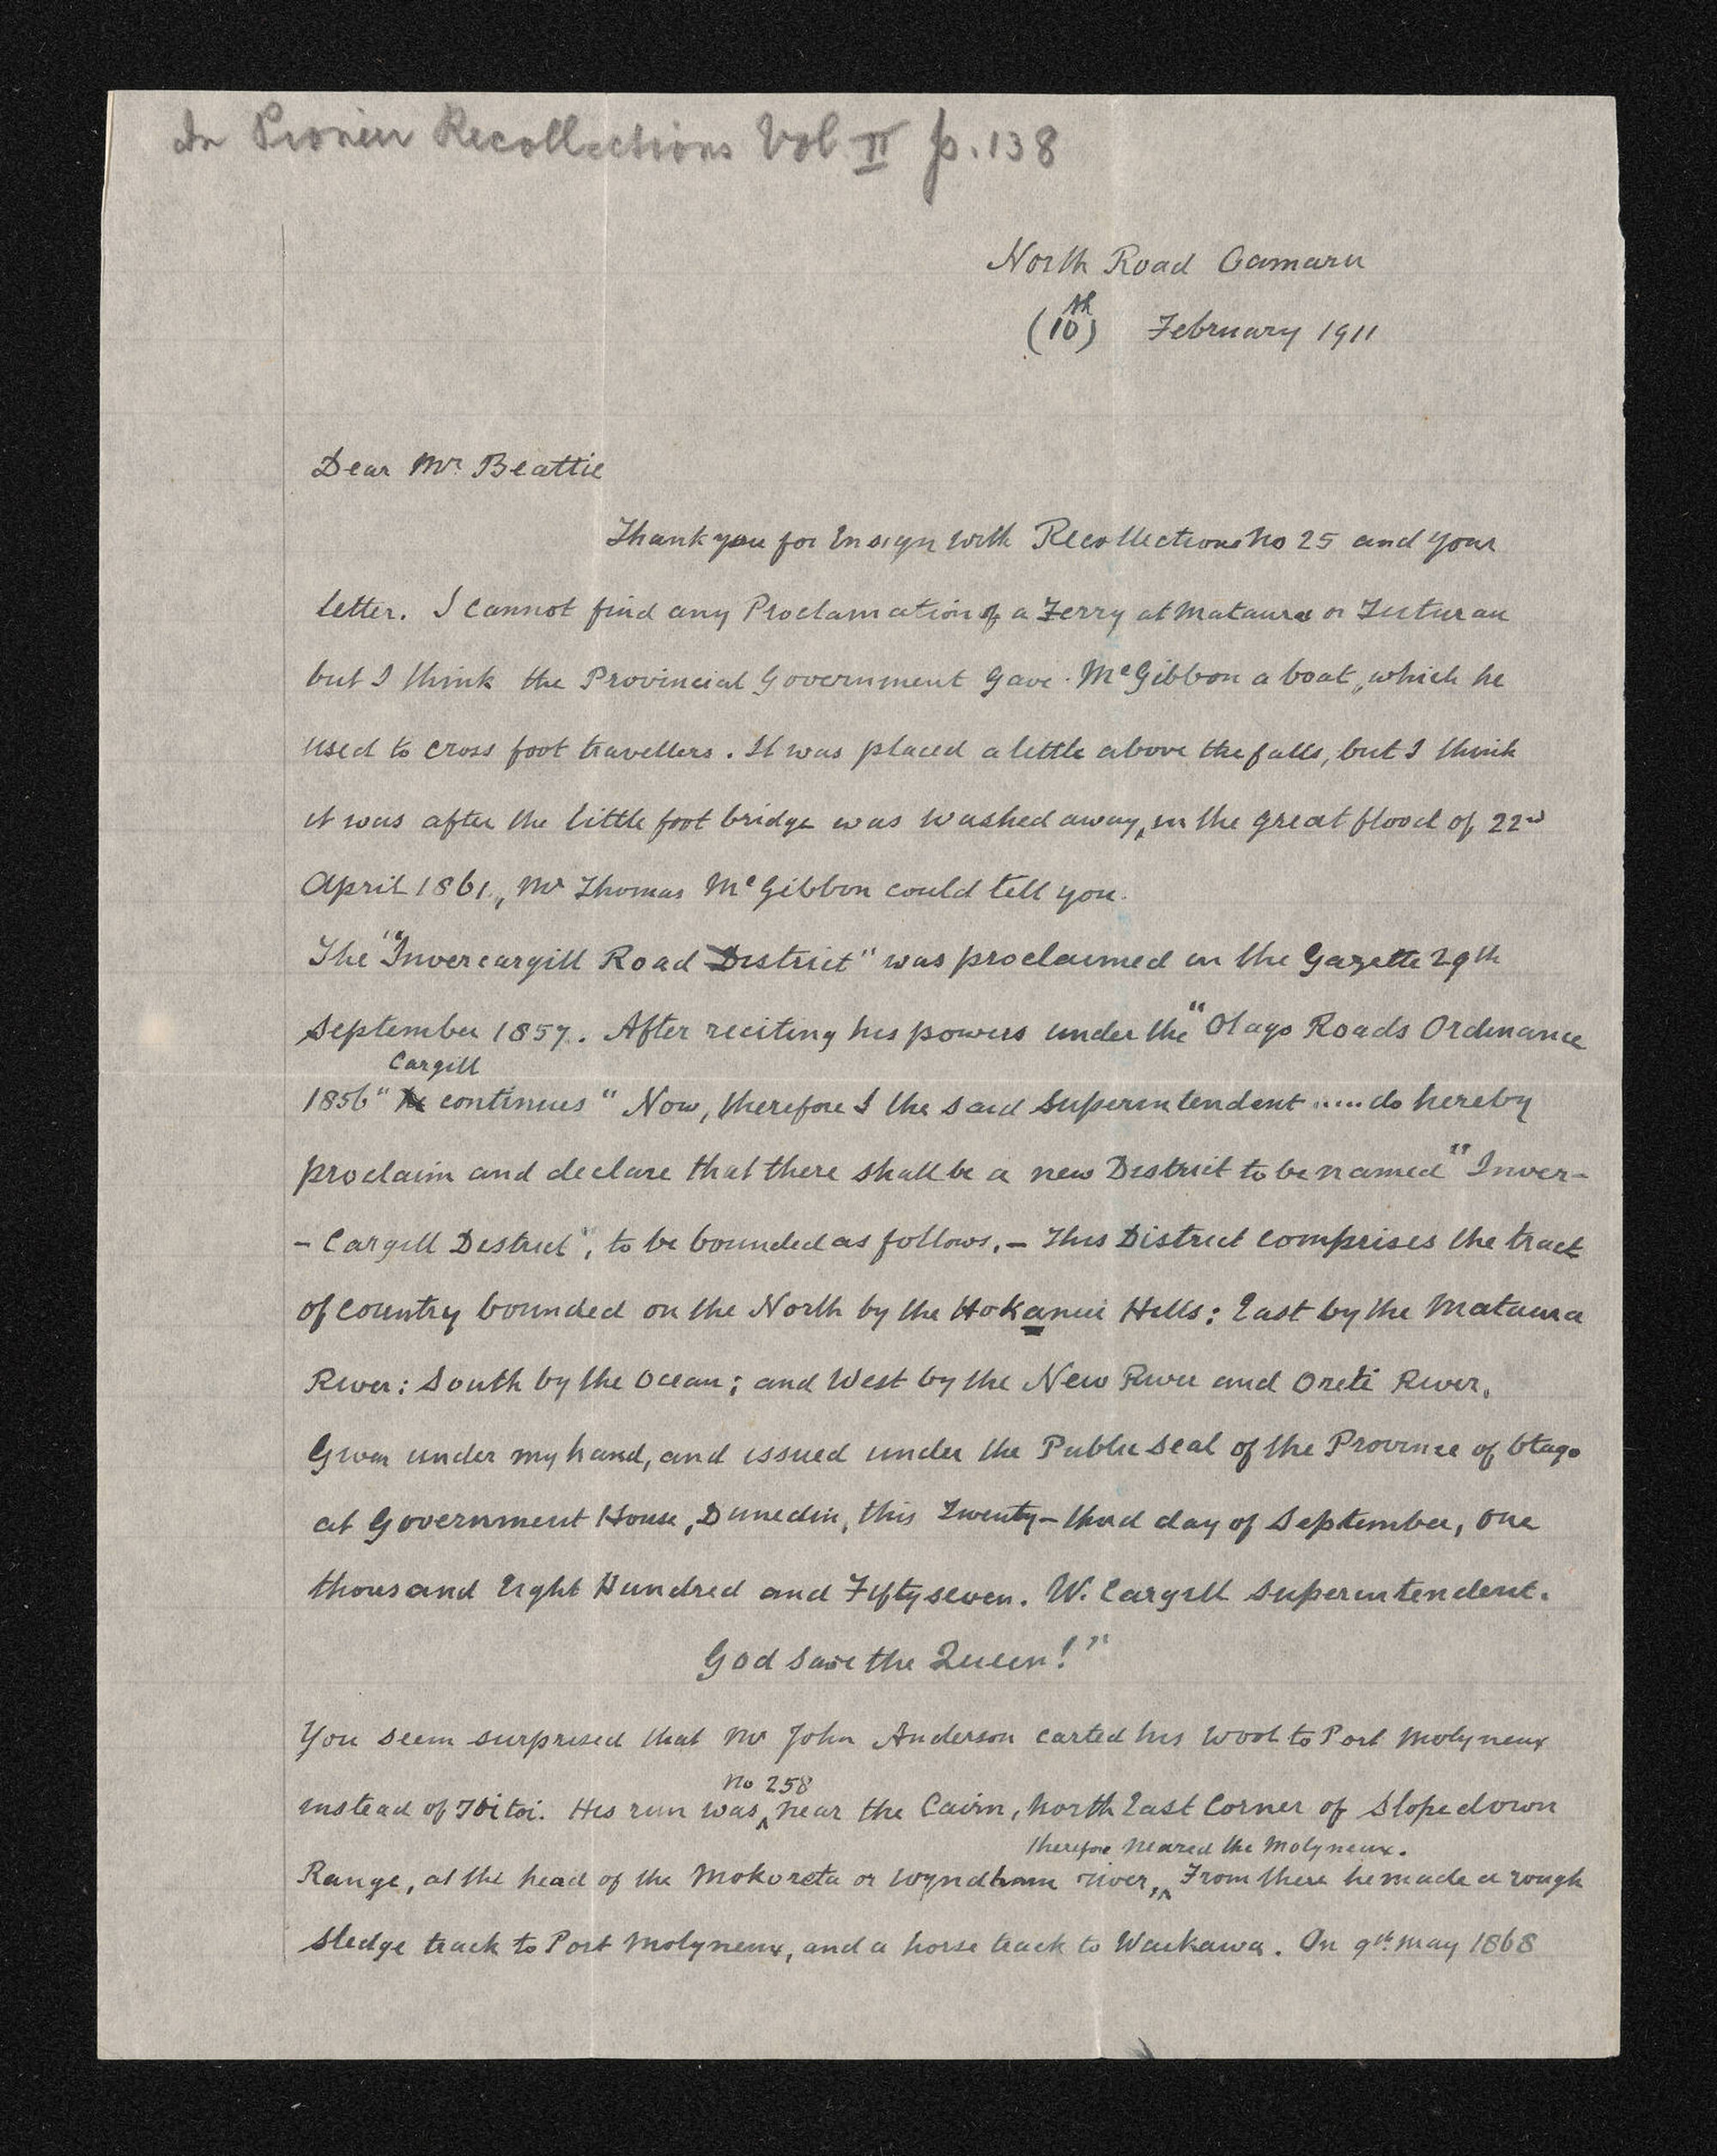 In Pioneer Recollections Vol II p. 138
North Road Oamaru
(10th) February 1911
Dear Mr Beattie
Thank you for Ensign with Recollections No 25 and your
letter. I cannot find any Proclamation of a Ferry at Mataura or Tuturau
but I think the Provincial Government gave McGibbon a boat, which he
used to cross foot travellers. It was placed a little above the falls, but I think
it was after the little foot bridge was washed away, in the great flood of 22nd
April 1861, Mr Thomas McGibbon could tell you.
The "Invercargill Road District" was proclaimed in the Gazette 29th
September 1857. After reciting his powers under the "Otago Roads Ordinance
Cargill
1856" He continues "Now, therefore I the said Superintendent ..... do hereby
proclaim and declare that there shall be a new District to be named "Inver-
- Cargill District", to be bounded as follows. - This District comprises the tract
of country bounded on the North by the Hokanui Hills: East by the Mataura
River: South by the Ocean; and West by the New River and Oreti River.
Given under my hand, and issued under the Public Seal of the Province of Otago
at Government House, Dunedin, this Twenty-third day of September, One
thousand Eight Hundred and Fifty seven. W. Cargill Superintendent.
God Save the Queen!"
You seem surprised that Mr John Anderson carted his wool to Port Molyneux
No 258
instead of Toitoi. His run was near the Cairn, North East Corner of Slopedown
therefore neared the Molyneux.
Range, at the head of the Mokoreta or Wyndham river, From there he made a rough
sledge track to Port Molyneux, and a horse track to Waikawa. On 9th May 1868